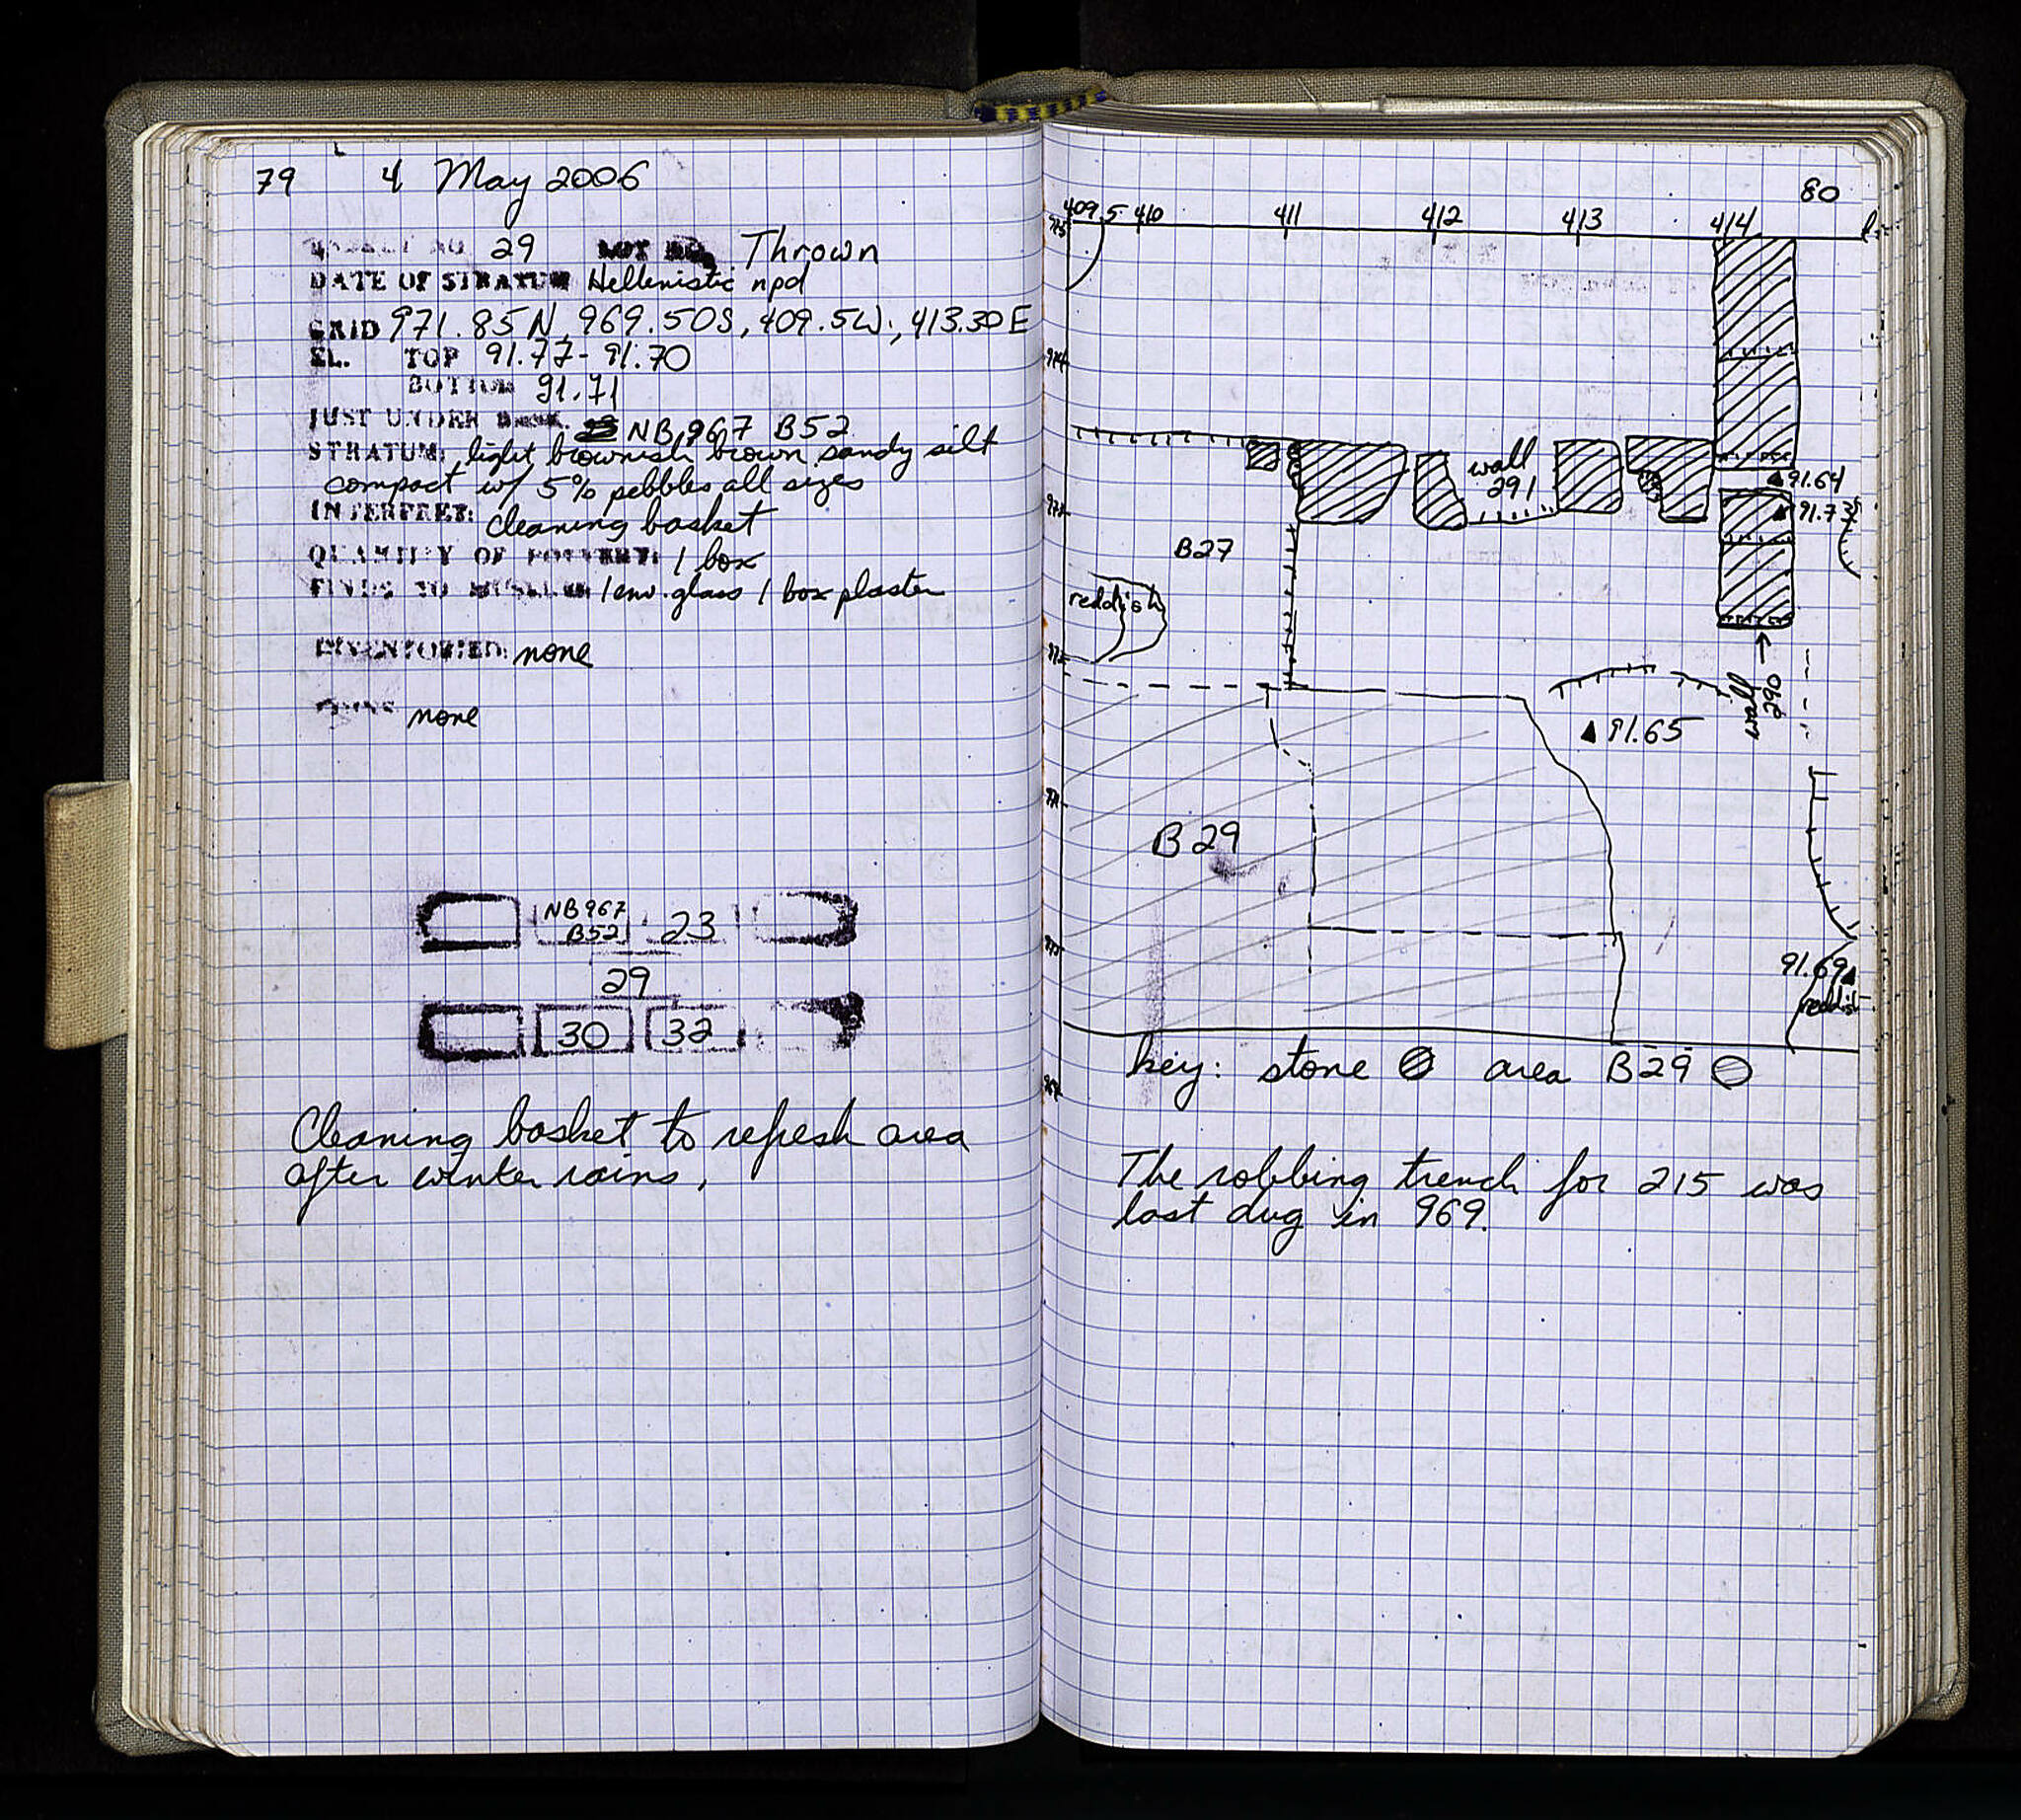 79 4 May 2006
BASKET NO 29 LOT NO. Thrown
DATE OF STRATUM Hellenistic npd
GRID 971.85N, 969.50S, 409.5W, 413.30E
EL. TOP 91.77-91.70
BOTTOM 91.71
JUST UNDER BASK. NB967 B52
STRATUM: light brownish brown sandy silt
compact w/ 5% pebbles all sizes
INTERPRET: cleaning basket
QUANTITY OF POTTERY: 1 box
FINDS TO MUSEUM 1 env. glass 1 box plaster
INVENTORIED: none
COINS none
NB967
B52 23
29
30 32
Cleaning basket to refresh area
after winter rains.
80
409.5 410 411 412 413 414
975
974
wall
291
91.64
973
91.73
B27
reddish
972
from
260
91.65
971
B29
970
91.69
reddish
key: stone area B29
969
The robbing trench for 215 was
last dug in 969.